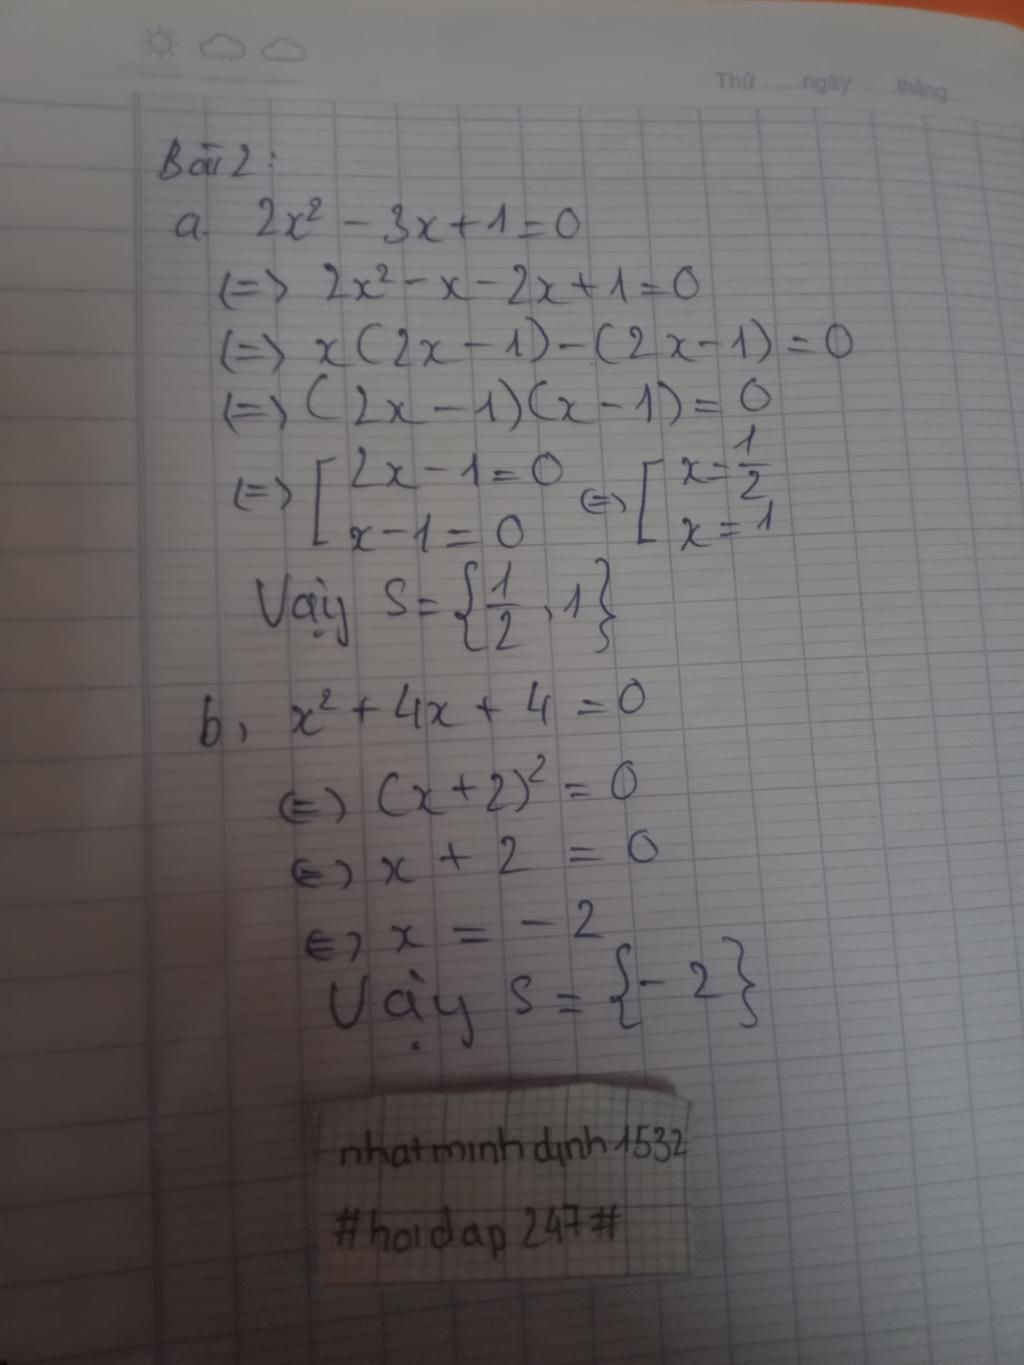 Thứ ngày tháng
Bài 2:
a. 2x² - 3x + 1 = 0
(=) 2x² - x - 2x + 1 = 0
(=) x(2x - 1) - (2x - 1) = 0
(=) (2x - 1)(x - 1) = 0
(=) [ 2x - 1 = 0 (=) [ x = 1/2
x - 1 = 0 x = 1
Vậy S = {1/2, 1}
b, x² + 4x + 4 = 0
(=) (x + 2)² = 0
(=) x + 2 = 0
(=) x = - 2
Vậy S = {- 2}
nhatminhdinh1532
#hoidap247#